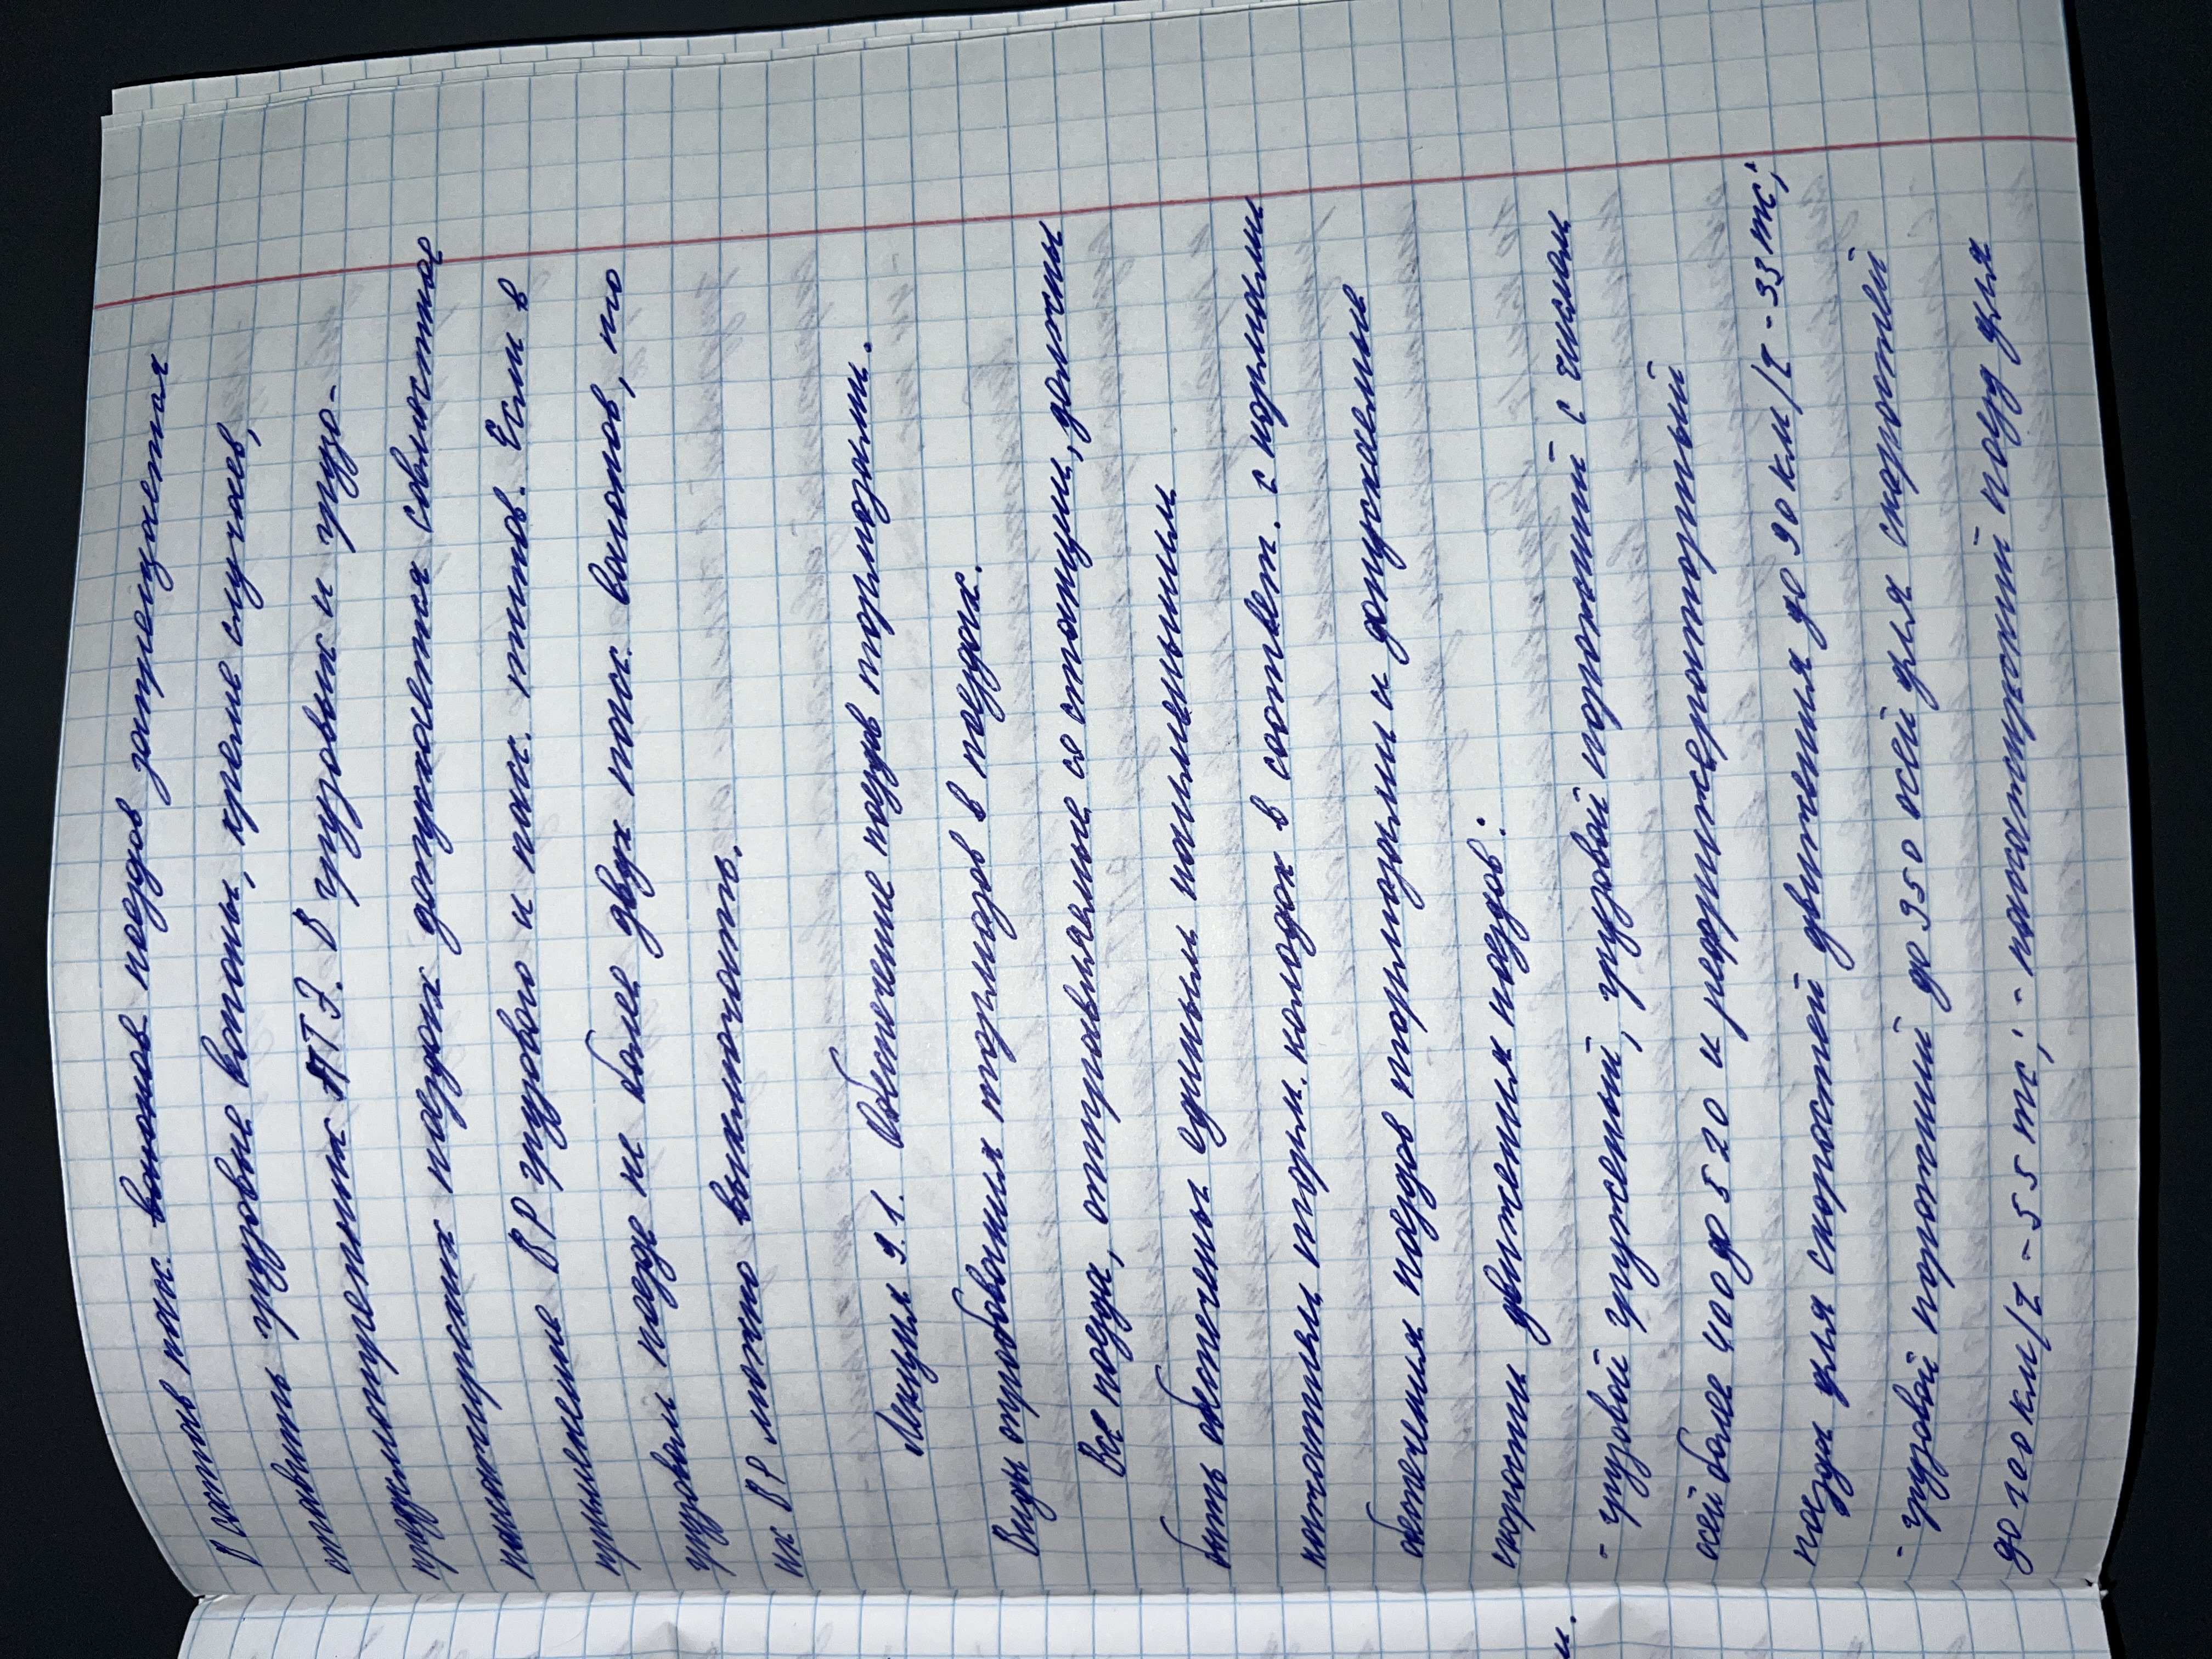 В состав пас. вагонов поездов запрещается
ставить грузовые вагоны, кроме случаев,
предусмотренных ПТЭ. В грузовых и грузо-
пассажирских поездах допускается совместное
применение ВР грузового и пас. типов. Если в
грузовом поезде не более двух пасс. вагонов, то
их ВР можно выключить.
Лекция 9.1. Обеспечение поездов тормозами.
Виды опробования тормозов в поездах.
Все поезда, отправляемые со станции, должны
быть обеспечены единым наименьшим
нажатием торм. колодок в соответ. с нормами
обеспечения поездов тормозами и допускаемые
скорости движения поездов:
- грузовой груженый, грузовой порожний с числом
осей более 400 до 520 и рефрижераторный
поезда для скоростей движения до 90 км/ч - 33 тс;
- грузовой порожний до 350 осей для скоростей
до 100 км/ч - 55 тс; - пассажирский поезд для